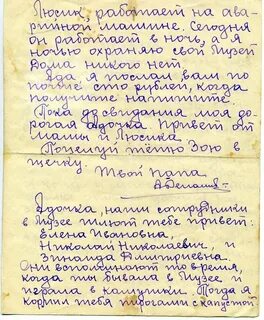 Люсик, работает на ава-
рийной машине. Сегодня
он работает в ночь, а я
ночью охраняю свой Музей
Дома никого нет.
Ада, я послал вам по
почте сто рублей, когда
получите напишите.
Пока до свидания моя до-
рогая адочка. Привет от
мамы и Люсика.
Поцелуй тётю Зою в
щечку.
Твой папа
Адочка, наши сотрудники
в Музее шлют тебе привет:
Елена Ивановна,
Николай Николаевич, и
Зинаида Дмитриевна.
Они вспоминают то время,
когда ты бывала в Музее, и
играла в камушки. Тогда я
кормил тебя пирогами с капустой